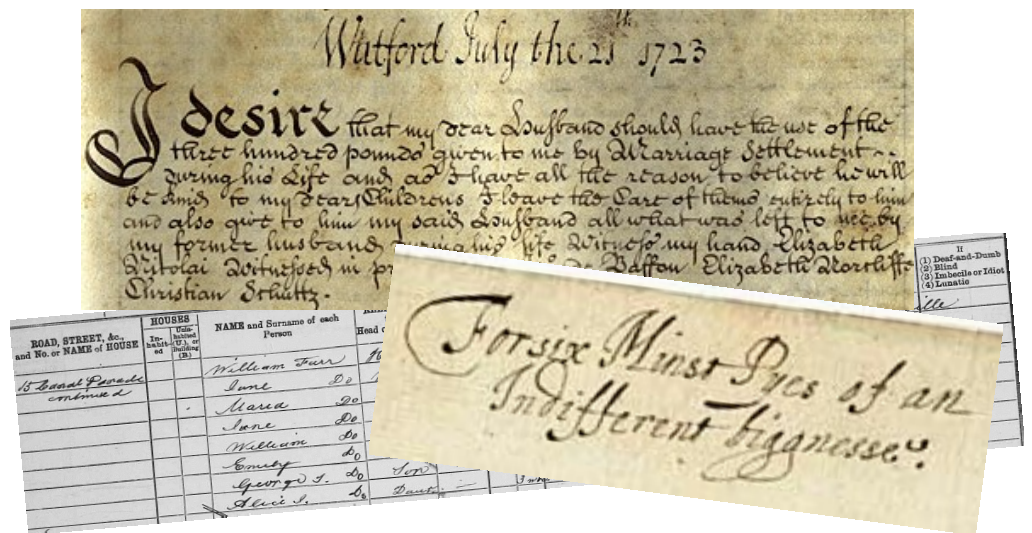 Watford July the 21th 1723
I desire that my dear Husband should have the use of the
three hundred pounds given to me by Marriage Settlement
During his Life and as I have all the reason to believe he will
be kind to my dear Childrens I leave the Care of thems entirely to him
and also give to him my said Husband all what was left to me by
my former husband his life Witness my hand Elizabeth
Nitolai Witnessed in de Baffon Elizabeth Norcliffe
Christian Schuttz.
If
(1) Deaf-and-Dumb
(2) Blind
(3) Imbecile or Idiot
(4) Lunatic
ROAD, STREET, &c.,
and No. or NAME of HOUSE
HOUSES
In-
habit-
ed
Unin-
habited
(U.), or
Building
(B.)
NAME and Surname of each
Person
Head of
15 Canal Parade
continued
William Furr
Jane Do
Maria Do
Jane Do
William Do
Emily Do
George T. Do Son
Alice J. Do Daur
For six Minst Pyes of an
Indifferent biggnesse.